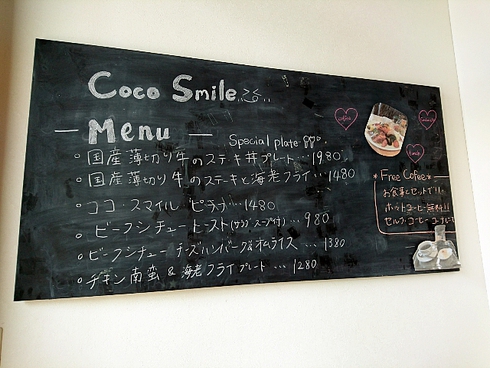 Coco Smile
— Menu —
Special plate
国産薄切り牛のステキ丼プレート…1980
国産薄切り牛のステーキと海老フライ…1480
ココ・スマイル ピラフ…1480
ビーフシチュートースト(サラダ スープ付)…980
ビーフシチュー チーズハンバーグ&オムライス…1380
チキン南蛮&海老フライプレート…1280
*Free Cofee*
お食事とセットで!!
ホットコーヒー無料!!
セルフ・コーヒー